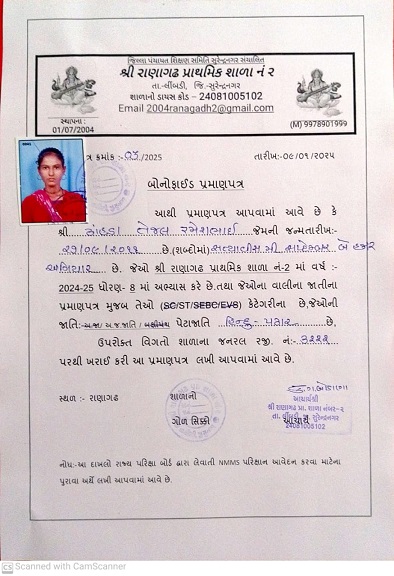 જિલ્લા પંચાયત શિક્ષણ સમિતિ સુરેન્દ્રનગર સંચાલિત
શ્રી રાણાગઢ પ્રાથમિક શાળા નં ૨
તા.-લીંબડી, જિ.-સુરેન્દ્રનગર
શાળાનો ડાયસ કોડ – 24081005102
Email 2004ranagadh2@gmail.com
સ્થાપના :
01/07/2004
(M) 9978901999
ત્ર ક્રમાંક :- /2025
તારીખ:-
બોનોફાઈડ પ્રમાણપત્ર
આથી પ્રમાણપત્ર આપવામાં આવે છે કે
શ્રી તેજલ રમેશભાઈ જેમની જન્મતારીખ:-
(શબ્દોમાં) સપ્ટેમ્બર બે હજાર
અગિયાર છે. જેઓ શ્રી રાણાગઢ પ્રાથમિક શાળા નં-2 માં વર્ષ :-
2024-25 ધોરણ- 8 માં અભ્યાસ કરે છે.તથા જેઓના વાલીના જાતીના
પ્રમાણપત્ર મુજબ તેઓ (SC/ST/SEBC/EVS) કેટેગરીના છે.જેઓની
જાતિ:- પેટાજાતિ હિન્દુ - છે,
ઉપરોક્ત વિગતો શાળાના જનરલ રજી. નં:-
પરથી ખરાઈ કરી આ પ્રમાણપત્ર લખી આપવામાં આવે છે.
સ્થળ :- રાણાગઢ
શાળાનો
ગોળ સિક્કો
આચાર્યશ્રી
શ્રી રાણાગઢ પ્રા. શાળા નંબર-૨
તા. લીંબડી, જિ. સુરેન્દ્રનગર
24081005102
આચાર્ય
નોંધ:-આ દાખલો રાજ્ય પરિક્ષા બોર્ડ દ્વારા લેવાતી NMMS પરિક્ષાન આવેદન કરવા માટેના
પુરાવા અર્થે લખી આપવામાં આવે છે.
CS Scanned with CamScanner